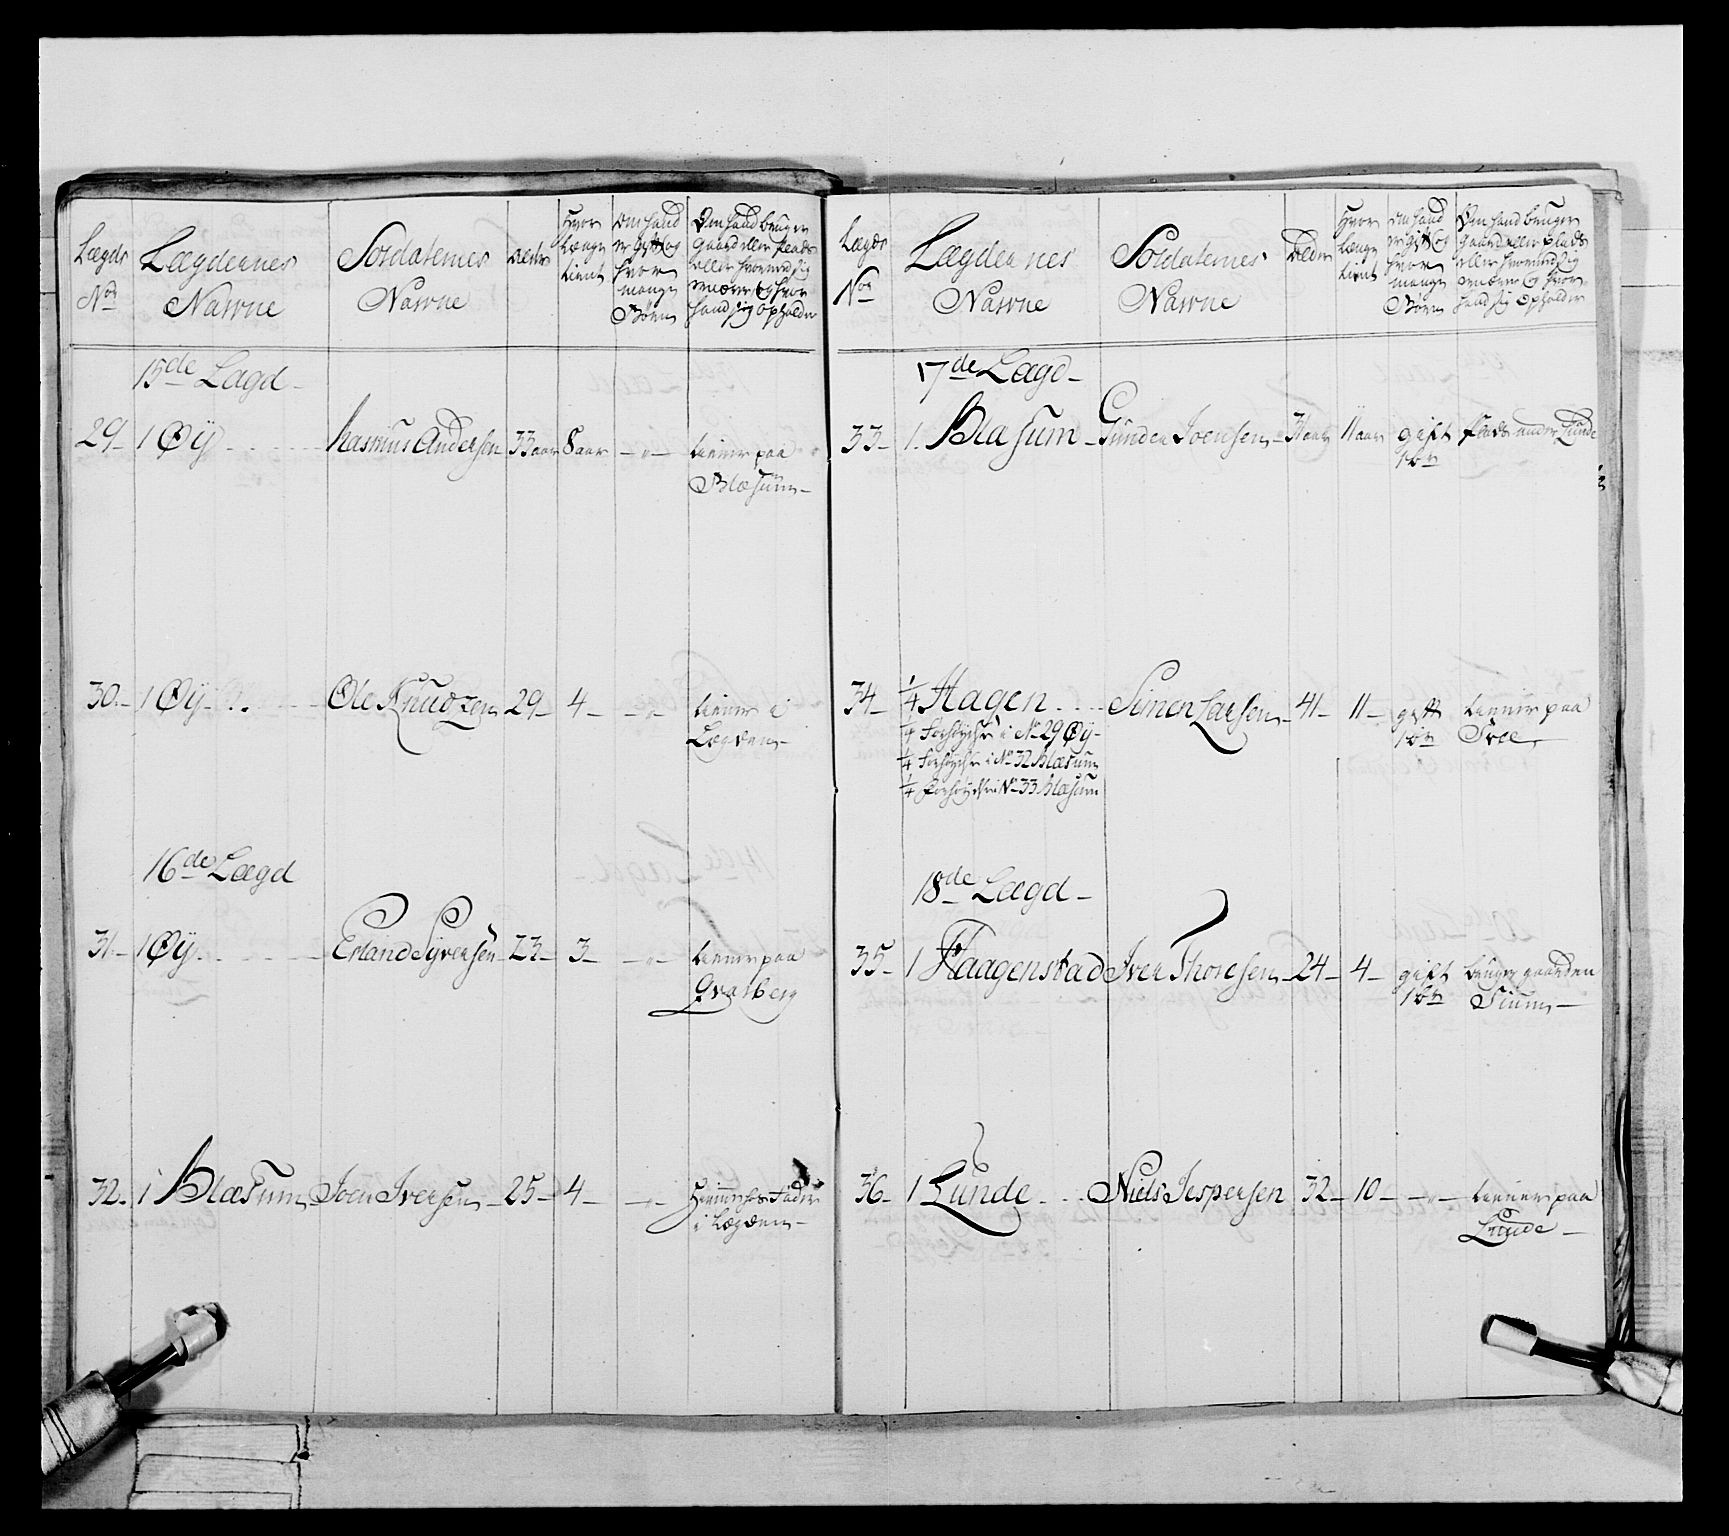 Lægds
No
Lægdernes
Navne
Soldaternes
Navne
Alder
Hvor
Længe
tient
Om hand
er Gift og
hvor
mange
Børn
Om hand bruger
gaard eller Plads
eller hvormed sig
ernærer og hvor
hand sig opholder
15de Lægd
29 1 Øy Rasmus Andersen 33 aar 8 aar tiener paa
Blæsum
30 1 Øy Ole Knudzen 29 4 tiener i
Lægden
16de Lægd
31 1 Øy Erland Syversen 23 3 tiener paa
Qvarberg
32 1 Blæsum Joen Iversen 25 4 hiemme hos Fader
i Lægden
Lægds
No
Lægdernes
Navne
Soldaternes
Navne
Alder
Hvor
Længe
tient
Om hand
er Gift og
hvor
mange
Børn
Om hand bruger
gaard eller Plads
eller hvormed sig
ernærer og hvor
hand sig opholder
17de Lægd
33 1 Blæsum Gunder Joensen 31 aar 11 aar gift Plads under Lunde
1 bn
34 1/4 Hagen Simen Larsen 41 11 gift tiener paa
1/4 Forhøyelse i No 29 Øy 1 bn
1/4 Forhøyelse i No 32 Blæsum
1/4 Forhøyelse i No 33 Blæsum
18de Lægd
35 1 Haagenstad Iver Thoresen 24 4 gift bruger gaarden
1 bn
36 1 Lunde Niels Jespersen 32 10 tiener paa
Lunde